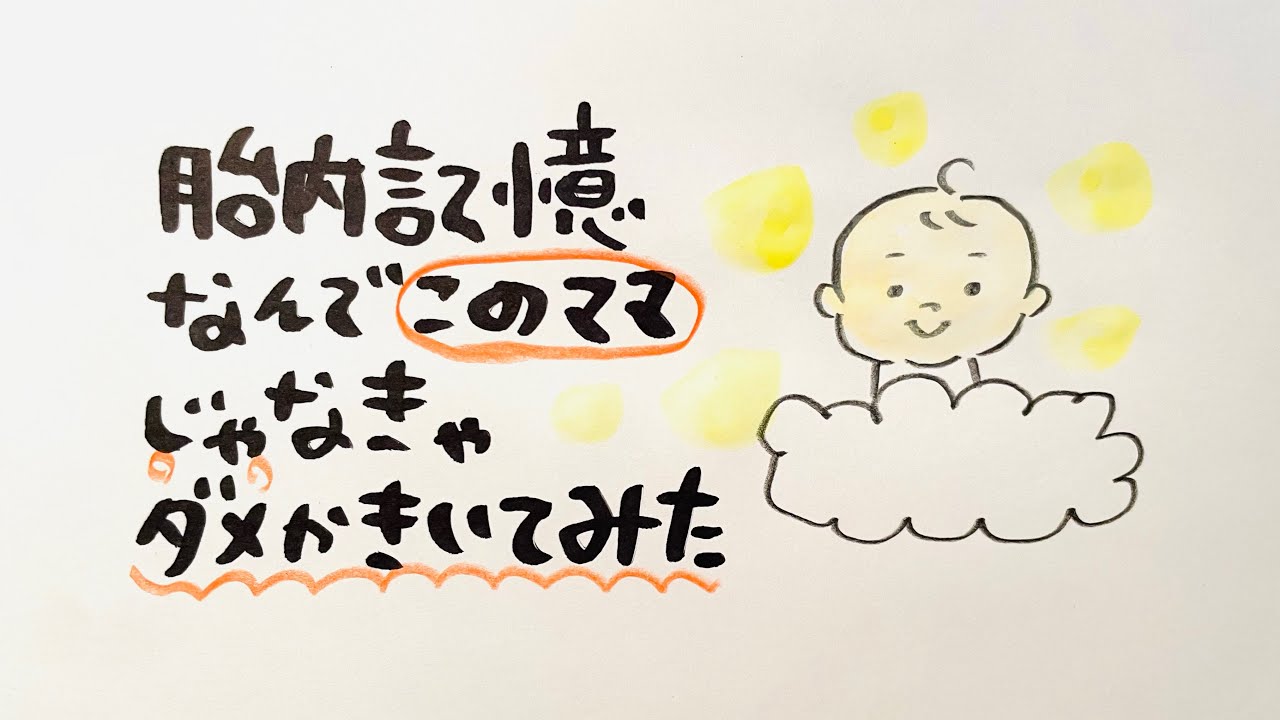 胎内記憶
なんでこのママ
じゃなきゃ
ダメかきいてみた